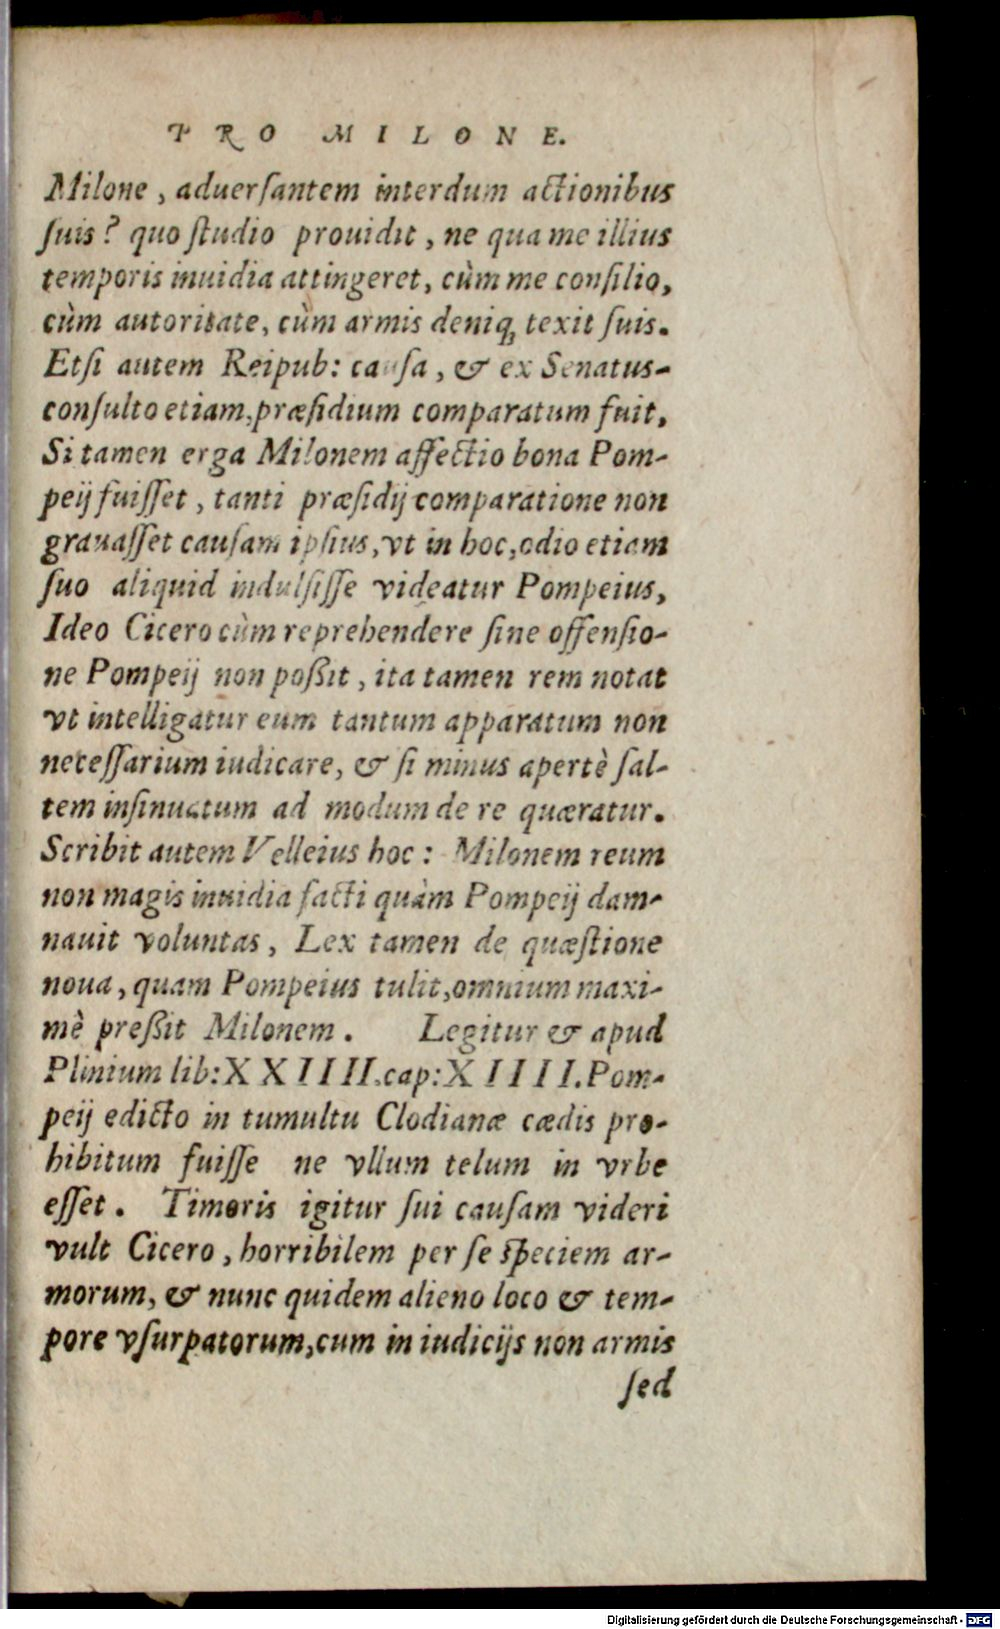 PRO MILONE.
Milone, aduerſantem interdum actionibus
ſuis? quo ſtudio prouidit, ne qua me illius
temporis inuidia attingeret, cùm me conſilio,
cùm autoritate, cùm armis deniq; texit ſuis.
Etſi autem Reipub: cauſa, & ex Senatus-
conſulto etiam, præſidium comparatum fuit,
Si tamen erga Milonem affectio bona Pom-
peij fuiſſet, tanti præſidij comparatione non
grauaſſet cauſam ipſius, vt in hoc, odio etiam
ſuo aliquid indulſiſſe videatur Pompeius,
Ideo Cicero cùm reprehendere ſine offenſio-
ne Pompeij non poßit, ita tamen rem notat
vt intelligatur eum tantum apparatum non
neceſſarium iudicare, & ſi minus apertè ſal-
tem inſinuatum ad modum de re quæratur.
Scribit autem Velleius hoc: Milonem reum
non magis inuidia facti quàm Pompeij dam-
nauit voluntas, Lex tamen de quæſtione
noua, quam Pompeius tulit, omnium maxi-
mè preßit Milonem. Legitur & apud
Plinium lib: XXIIIII. cap: XIIII. Pom-
peij edicto in tumultu Clodianæ cædis pro-
hibitum fuiſſe ne vllum telum in vrbe
eſſet. Timoris igitur ſui cauſam videri
vult Cicero, horribilem per ſe ſpeciem ar-
morum, & nunc quidem alieno loco & tem-
pore vſurpatorum, cum in iudicijs non armis
ſed
Digitalisierung gefördert durch die Deutsche Forschungsgemeinschaft - DFG